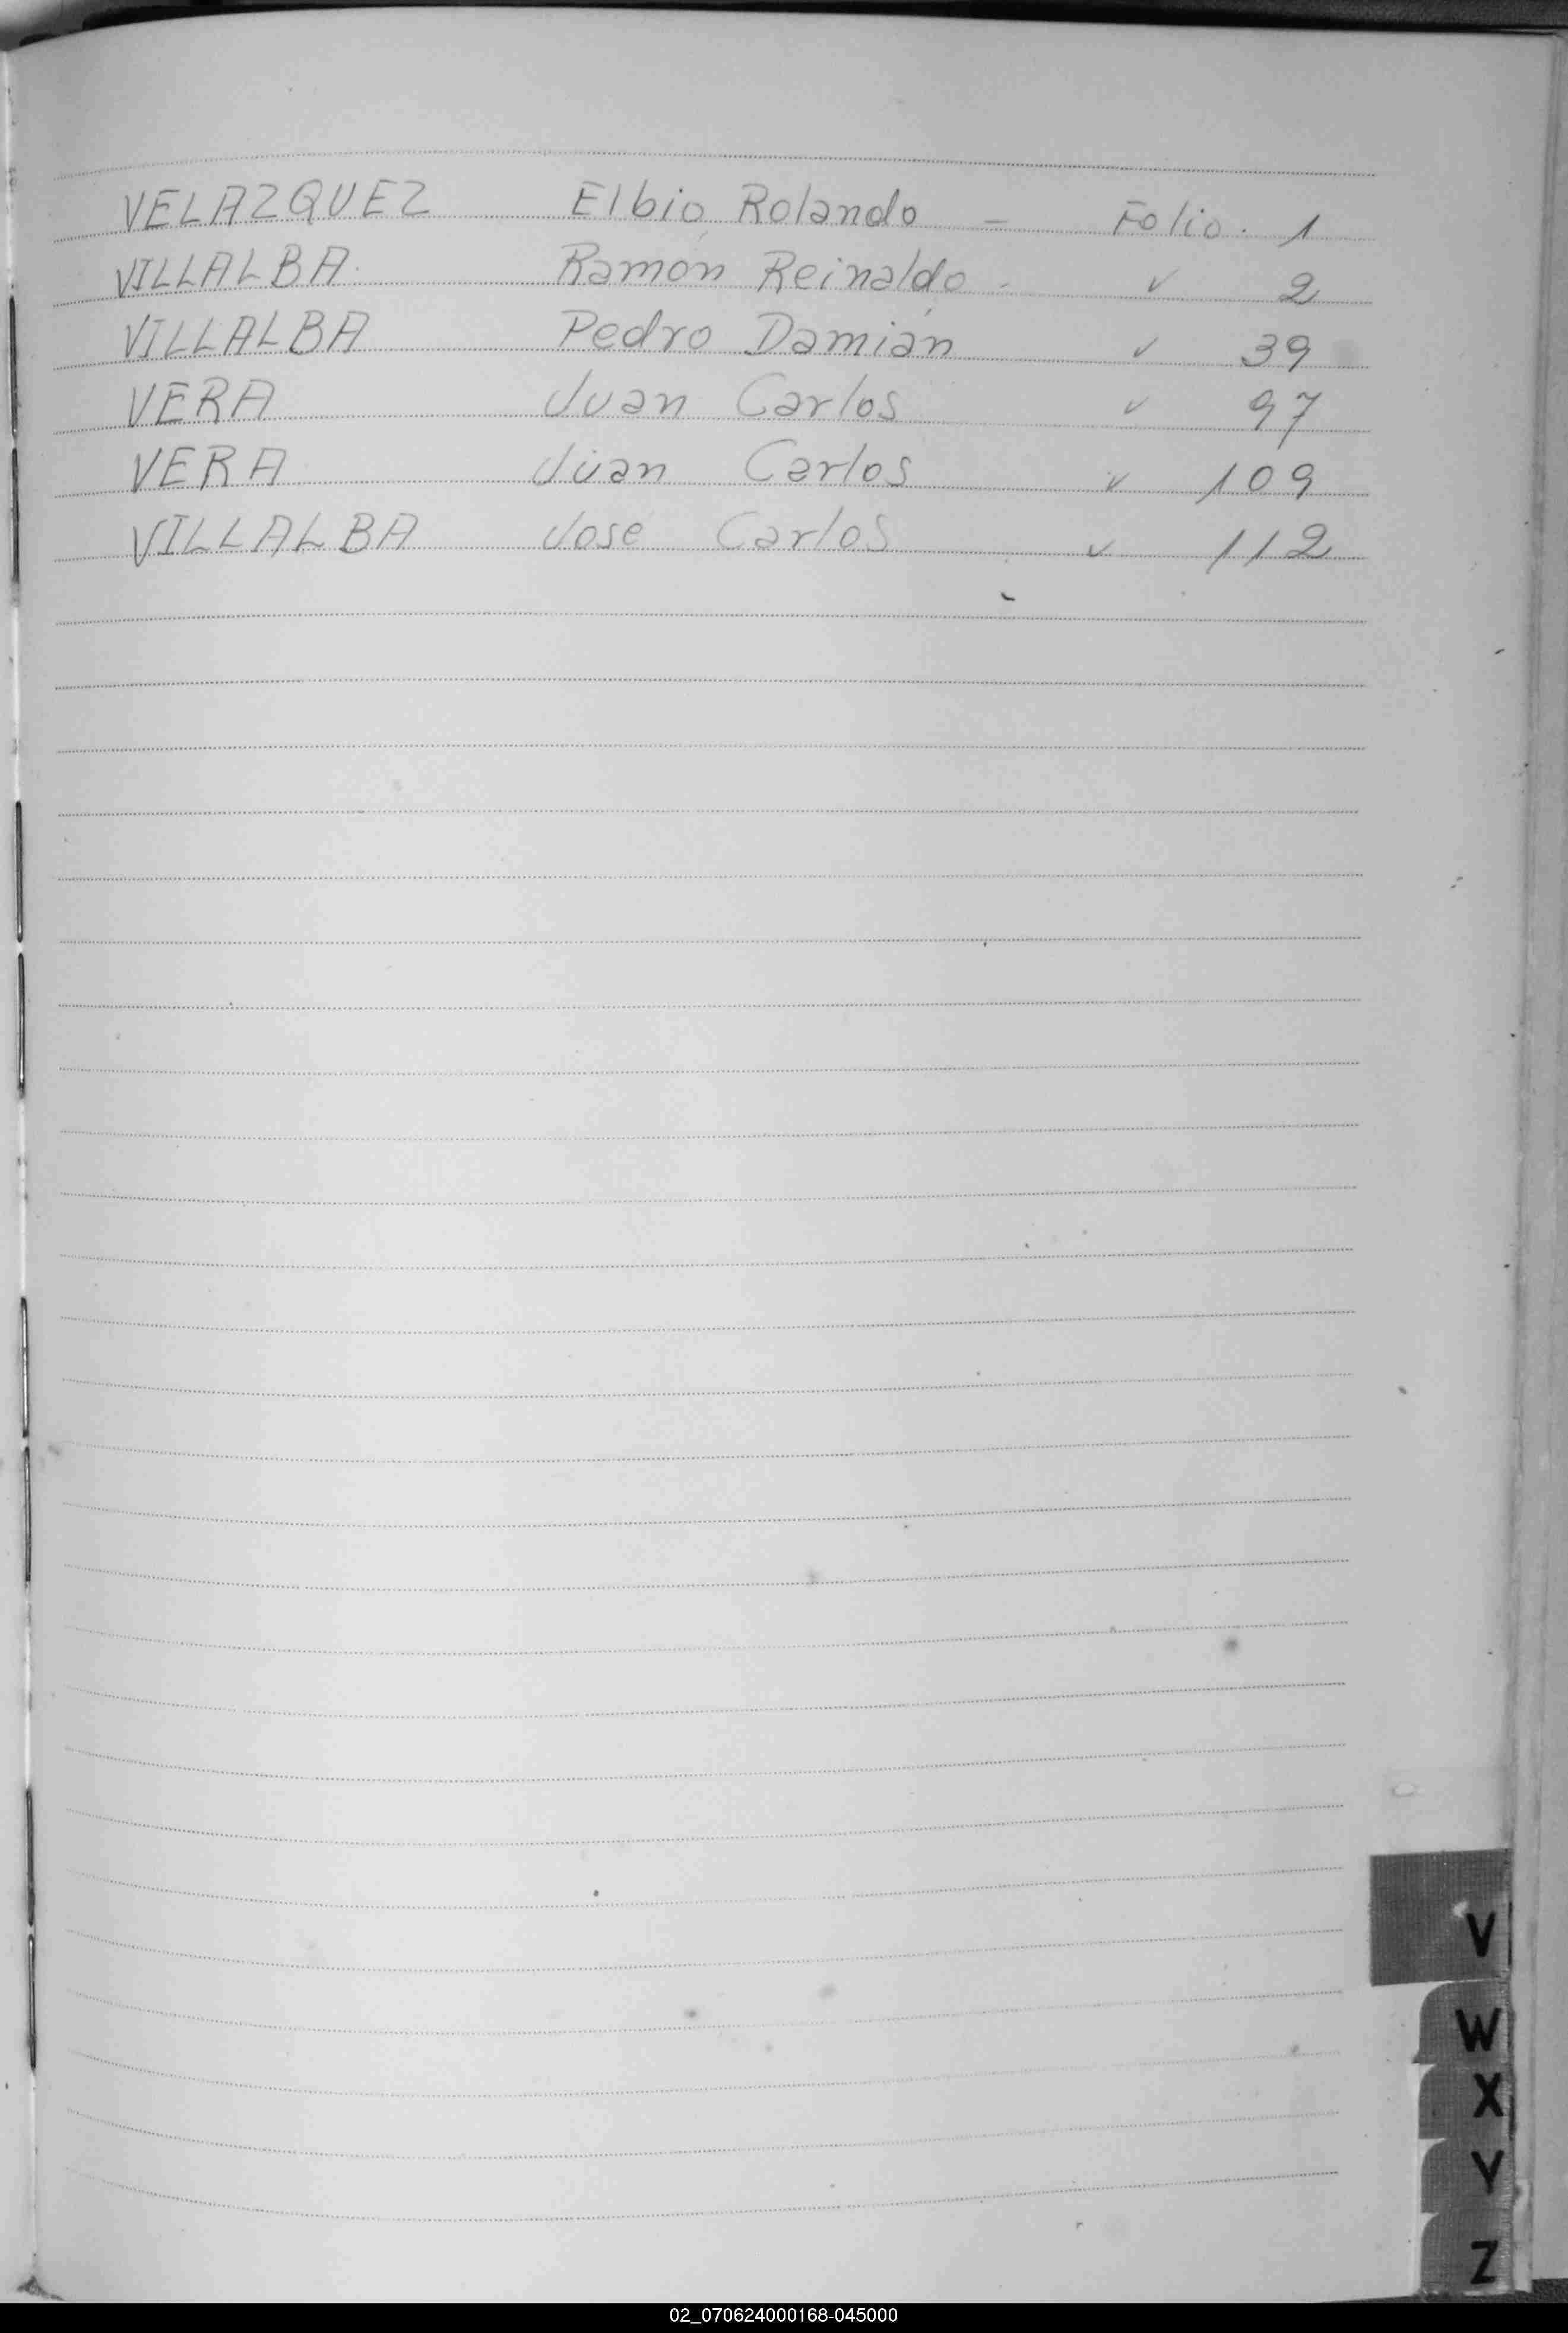 VELAZQUEZ Elbio Rolando - Folio. 1
VILLALBA. Ramón Reinaldo - ✓ 2
VILLALBA Pedro Damián ✓ 39
VERA Juan Carlos ✓ 97
VERA Juan Carlos ✓ 109
VILLALBA José Carlos ✓ 112
V
W
X
Y
Z
02_070624000168-045000